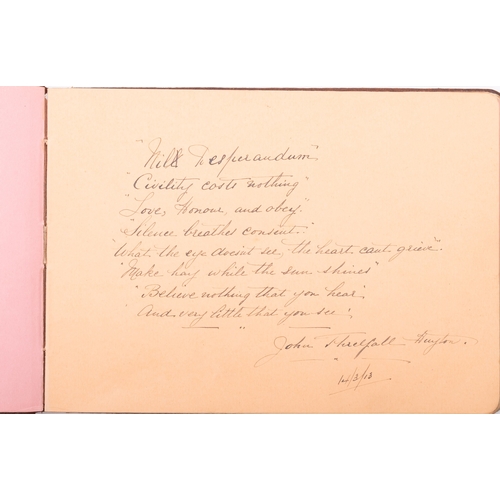 "Nill Desperandum"
"Civility costs nothing"
"Love, Honour, and obey."
"Silence breathes consent."
"What the eye doesn't see, the heart can't grieve".
"Make hay while the sun shines"
"Believe nothing that you hear,
And very little that you see".
John Threlfall Huyton.
14/3/13